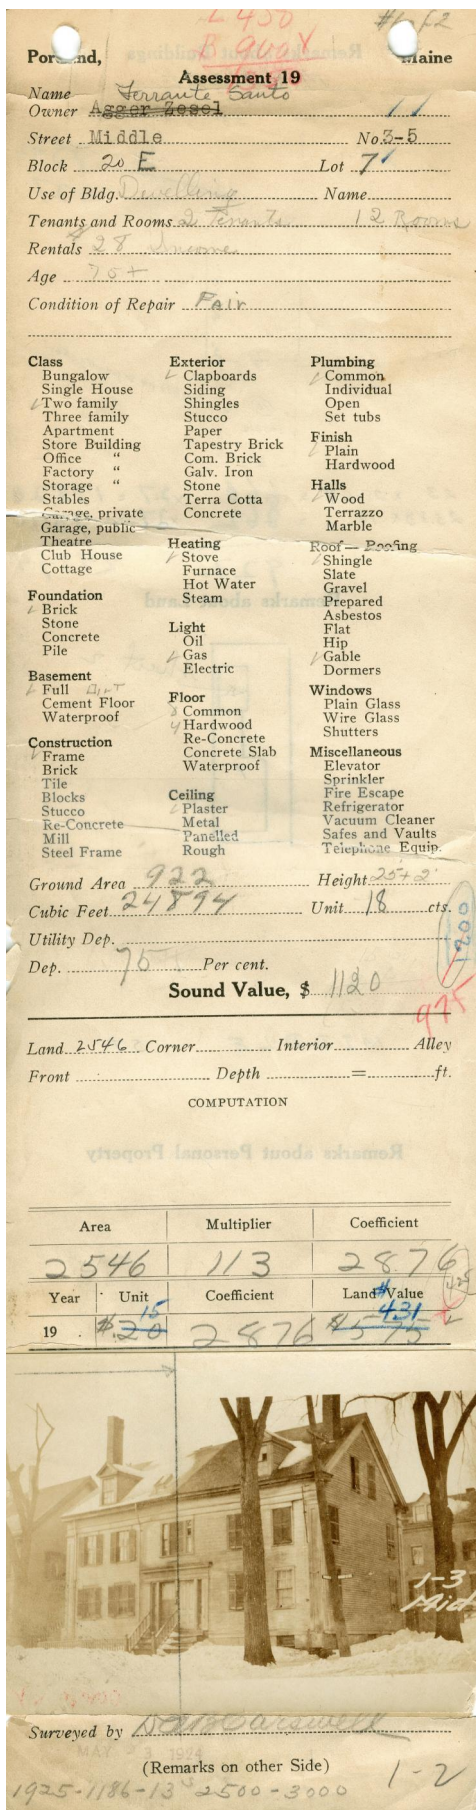 L 450
#1 of 2
B
Portland, Maine
Assessment 19
Name Ferrante Santo
Owner Agger Zesel 11
Street Middle No 3-5
Block 20 E Lot 7
Use of Bldg. Dwelling Name
Tenants and Rooms 2 Tenants 12 Rooms
Rentals 28 Income
Age 75+
Condition of Repair Fair
Class
Bungalow
Single House
Two family
Three family
Apartment
Store Building
Office "
Factory "
Storage "
Stables
Garage, private
Garage, public
Theatre
Club House
Cottage
Foundation
Brick
Stone
Concrete
Pile
Basement
Full Dirt
Cement Floor
Waterproof
Construction
Frame
Brick
Tile
Blocks
Stucco
Re-Concrete
Mill
Steel Frame
Exterior
Clapboards
Siding
Shingles
Stucco
Paper
Tapestry Brick
Com. Brick
Galv. Iron
Stone
Terra Cotta
Concrete
Heating
Stove
Furnace
Hot Water
Steam
Light
Oil
Gas
Electric
Floor
Common
Hardwood
Re-Concrete
Concrete Slab
Waterproof
Ceiling
Plaster
Metal
Panelled
Rough
Plumbing
Common
Individual
Open
Set tubs
Finish
Plain
Hardwood
Halls
Wood
Terrazzo
Marble
Roof — Roofing
Shingle
Slate
Gravel
Prepared
Asbestos
Flat
Hip
Gable
Dormers
Windows
Plain Glass
Wire Glass
Shutters
Miscellaneous
Elevator
Sprinkler
Fire Escape
Refrigerator
Vacuum Cleaner
Safes and Vaults
Telephone Equip.
Ground Area 922 Height 25+2
Cubic Feet 24894 Unit 18 cts.
1200
Utility Dep.
Dep. 75 Per cent.
Sound Value, $ 1120
975
Land 2546 Corner Interior Alley
Front Depth = ft.
COMPUTATION
Remarks about Personal Property
Area Multiplier Coefficient
2546 113 2876
Year Unit Coefficient Land Value
15 $431
19 $.20 2876 $575
1-3
Mid
Surveyed by
MAY 1924
(Remarks on other Side)
1-2
1925-1186-13 2500-3000